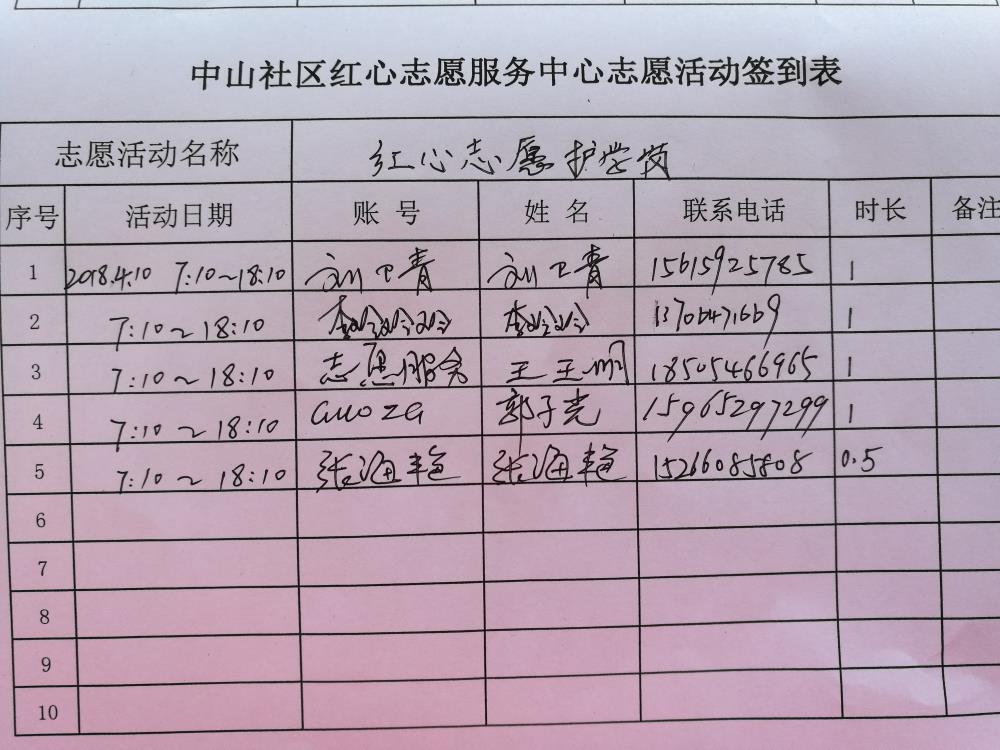 中山社区红心志愿服务中心志愿活动签到表
志愿活动名称 红心志愿护学岗
序号 活动日期 账号 姓名 联系电话 时长 备注
1 2018.4.10 7:10~18:10 刘卫青 刘卫青 15615925785 1
2 7:10~18:10 李玲玲 李玲 13706471669 1
3 7:10~18:10 志愿服务 王玉明 18505466965 1
4 7:10~18:10 guoza 郭子亮 15965297299 1
5 7:10~18:10 张海艳 张海艳 15266085808 0.5
6
7
8
9
10